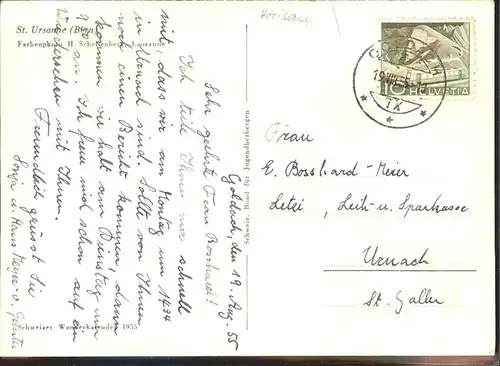 St. Ursanne (Bern)
Farbenphoto H. Schellenberg, Lausanne
Herisau
Goldach, den 19. Aug. 55
Sehr geehrte Frau Bosshard!
Ich teile Ihnen nur schnell
mit dass wir am Montag um 1434
in Urnach sind. Sollte von Ihnen
noch einen Bericht kommen, dann
kommen wir halt am Dienstag um
900 an. Ich freu mich schon auf ein
Wiedersehen mit Ihnen.
Freundlich grüsst Sie
Sonja u. Hans
Schweizer Wanderkalender 1955
Schweiz. Bund für Jugendherbergen
10 HELVETIA
19. VIII. 55
IX
Frau
E. Bosshard-Meier
Leih- u. Sparkasse
Uznach
St. Gallen